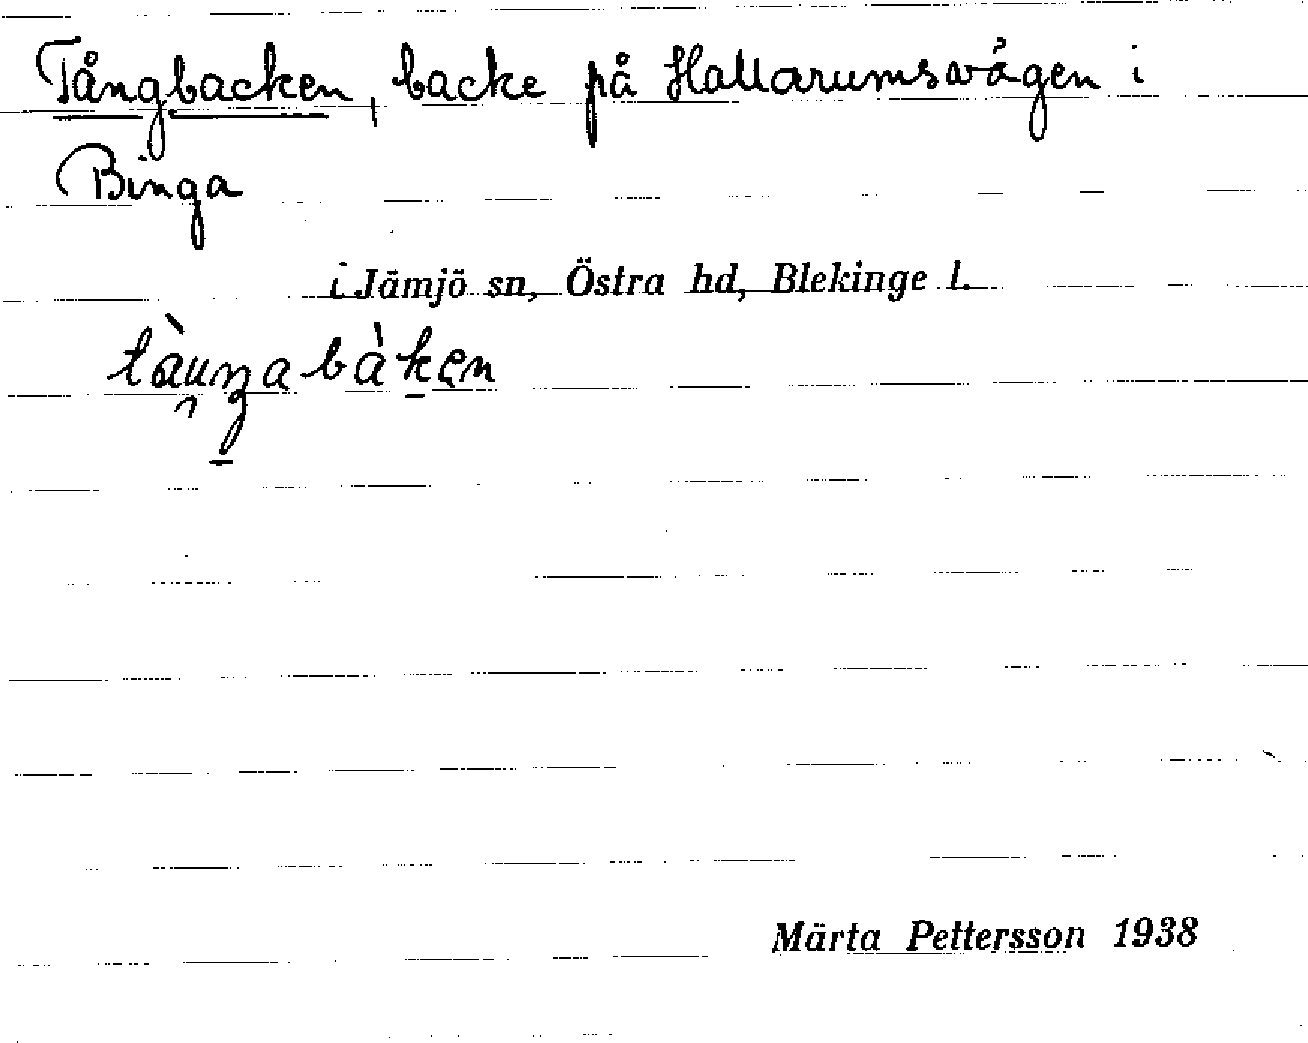 Tångbacken, backe på Hallarumsvägen i
Binga
i Jämjö sn, Östra hd, Blekinge l.
tàuŋabàken
Märta Pettersson 1938